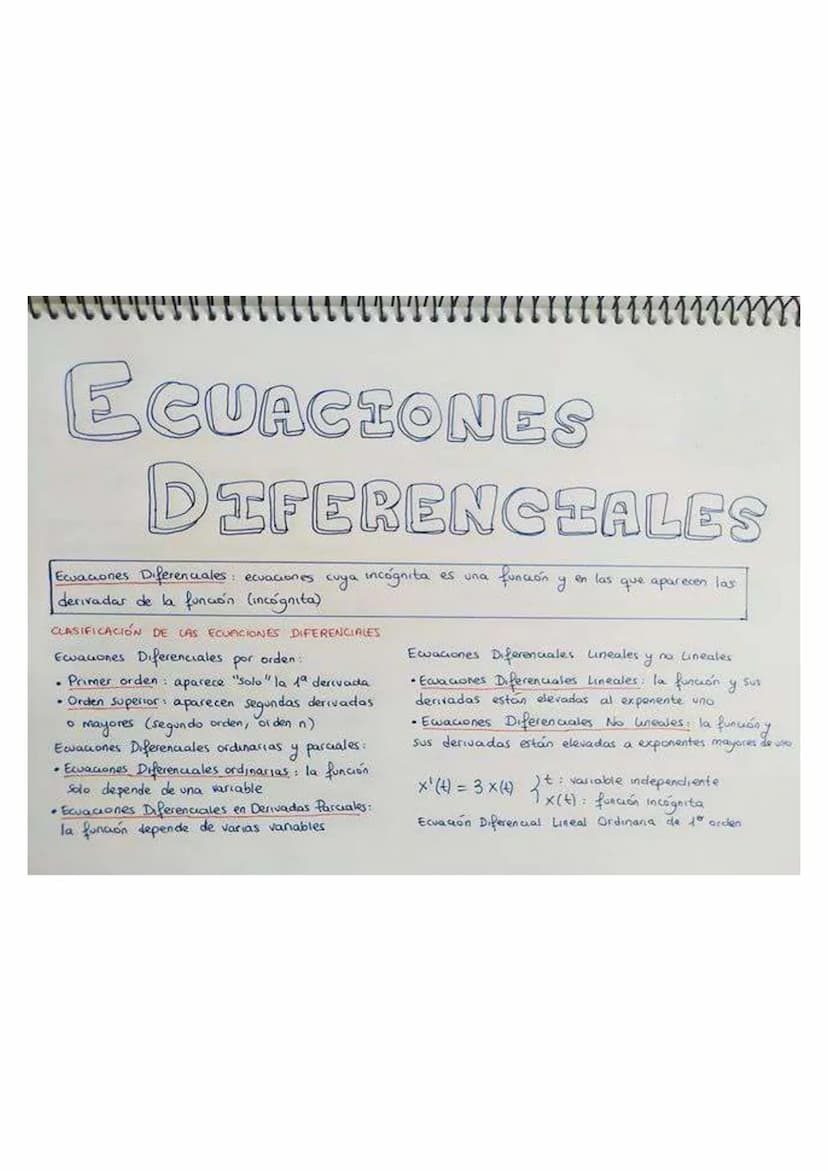 ECUACIONES
DIFERENCIALES
Ecuaciones Diferenciales: ecuaciones cuya incógnita es una función y en las que aparecen las
derivadas de la función (incógnita)
CLASIFICACIÓN DE LAS ECUACIONES DIFERENCIALES
Ecuaciones Diferenciales por orden:
• Primer orden: aparece "solo" la 1ª derivada
• Orden superior: aparecen segundas derivadas
o mayores (segundo orden, orden n)
Ecuaciones Diferenciales ordinarias y parciales:
• Ecuaciones Diferenciales ordinarias: la función
solo depende de una variable
• Ecuaciones Diferenciales en Derivadas Parciales:
la función depende de varias variables
Ecuaciones Diferenciales Lineales y no Lineales
• Ecuaciones Diferenciales Lineales: la función y sus
derivadas están elevadas al exponente uno
• Ecuaciones Diferenciales No Lineales: la función y
sus derivadas están elevadas a exponentes mayores de uno
x'(t) = 3 x(t) } t: variable independiente
x(t): función incógnita
Ecuación Diferencial Lineal Ordinaria de 1er orden